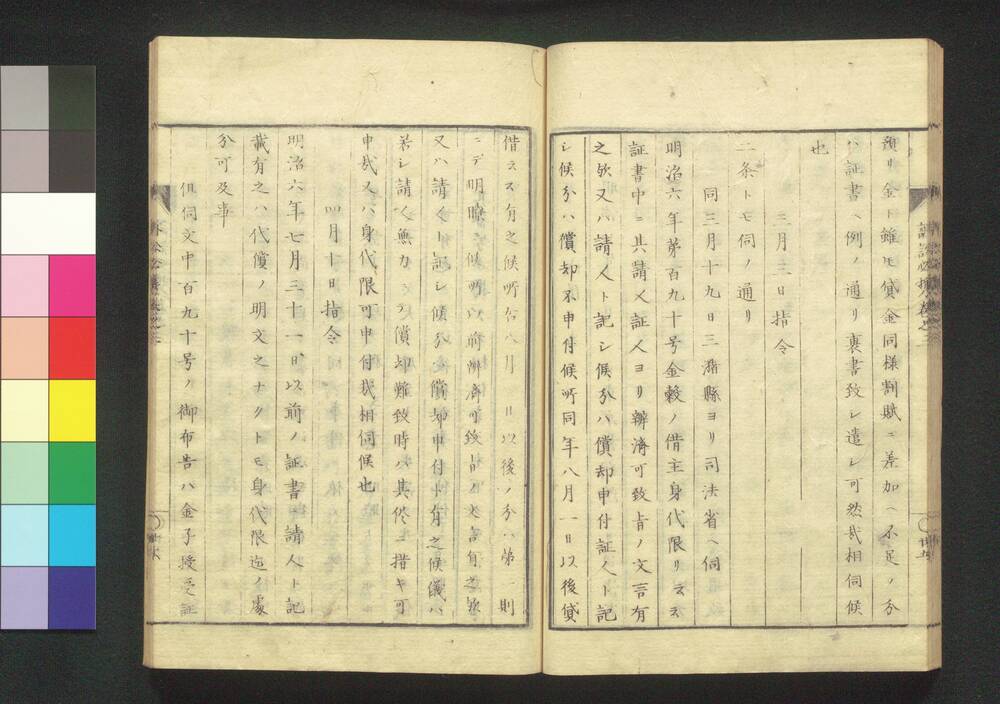 預リ金ト雖モ貸金同様割賦ニ差加ヘ不足ノ分
ハ証書ヘ例ノ通リ裏書致シ遣シ可然哉相伺候
也
三月三日指令
二条トモ伺ノ通リ
同三月十九日三潴縣ヨリ司法省ヘ伺
明治六年第百九十号金穀ノ借主身代限リ云云
証書中ニ其請人証人ヨリ辨済可致旨ノ文言有
之歟又ハ請人ト記シ候分ハ償却申付証人ト記
シ候分ハ償却不申付候所同年八月一日以後貸
借云云有之候所右八月一日以後ノ分ハ第一則
ニテ明瞭候所以前辨済可致旨ノ文言有之歟
又ハ請人ト記シ候分ハ償却申付ト有之候儀ハ
若シ請人無力ニテ償却難致時ハ其侭ニ措キ可
申哉又ハ身代限可申付哉相伺候也
四月十日指令
明治六年七月三十一日以前ノ証書ニ請人ト記
載有之ハ代償ノ明文之ナクトモ身代限迄ノ處
分可及事
但伺文中百九十号ノ御布告ハ金子授受証